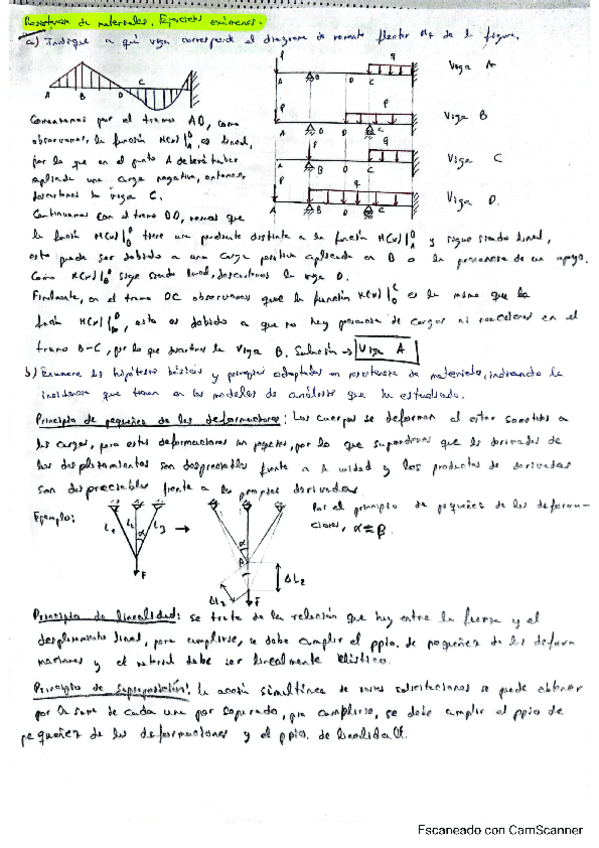 Resistencia de materiales, Ejercicios exámenes.
a) Indique a qué viga corresponde el diagrama de momento flector Mf de la figura.
A B D C
P A B D C q Viga A
P A B D C P Viga B
P A B D C q Viga C
P A B D C q Viga D.
Comenzamos por el tramo AB, como
observamos, la función M(x) es lineal,
por lo que en el punto A deberá haber
aplicada una carga negativa, entonces
descartamos la viga C.
Continuamos con el tramo BD, vemos que
la función M(x) tiene una pendiente distinta a la función M(x) y sigue siendo lineal,
esto puede ser debido a una carga positiva aplicada en B o la presencia de un apoyo.
Como M(x) sigue siendo lineal, descartamos la viga D.
Finalmente, en el tramo DC observamos que la función M(x) es la misma que la
función M(x), esto es debido a que no hay presencia de cargas ni reacciones en el
tramo B-C, por lo que descartamos la Viga B. Solución → Viga A
b) Enumere las hipótesis básicas y principios adoptados en resistencia de materiales, indicando la
incidencia que tienen en los modelos de análisis que ha estudiado.
Principio de pequeñez de las deformaciones: Los cuerpos se deforman al estar sometidos a
las cargas, pero estas deformaciones son pequeñas, por lo que supondremos que las derivadas de
los desplazamientos son despreciables frente a la unidad y los productos de derivadas
son despreciables frente a las propias derivadas.
Ejemplo:
L1 L2 L3 α F → α β ΔL2 ΔL2 F
Por el principio de pequeñez de las deforma-
ciones, α≈β.
Principio de linealidad: se trata de la relación que hay entre la fuerza y el
desplazamiento lineal, para cumplirse, se debe cumplir el ppio. de pequeñez de las defor
maciones y el material debe ser linealmente elástico.
Principio de superposición: la acción simultánea de varias solicitaciones se puede obtener
por la suma de cada una por separado, para cumplirse, se debe cumplir el ppio de
pequeñez de las deformaciones y el ppio. de linealidad.
Escaneado con CamScanner